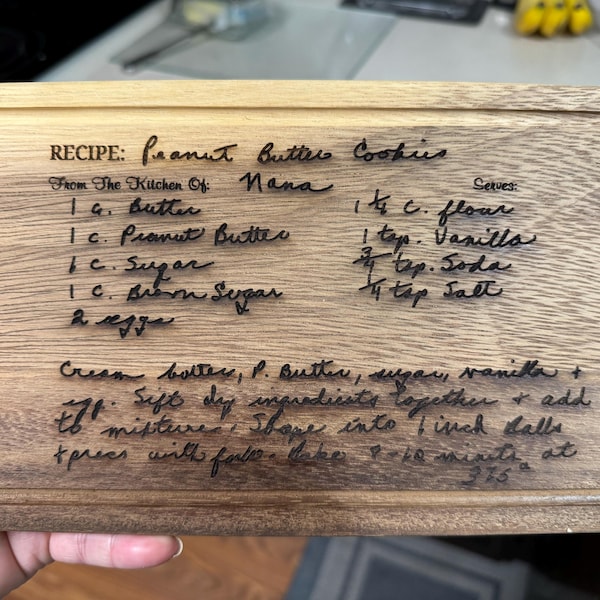 RECIPE: Peanut Butter Cookies
From The Kitchen Of: Nana Serves:
1 c. Butter
1 c. Peanut Butter
1 c. Sugar
1 c. Brown Sugar
2 eggs
1 1/4 C. flour
1 tsp. Vanilla
3/4 tsp. Soda
1/4 tsp Salt
Cream butter, P. Butter, sugar, vanilla +
egg. Sift dry ingredients together + add
to mixture. Shape into 1 inch Balls
+ press with fork. Bake 8-10 minute at
375°